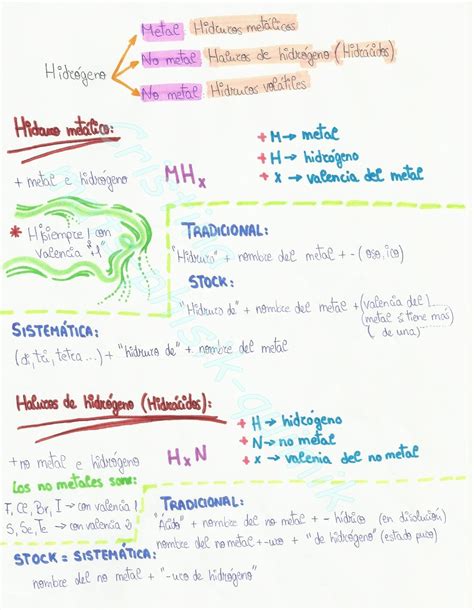 Metal Hidruros metálicos
Hidrógeno No metal Haluros de hidrógeno (Hidrácidos)
No metal Hidruros volátiles
Hidruro metálico:
+ metal e hidrógeno
MHx
+ M → metal
+ H → hidrógeno
+ x → valencia del metal
* H siempre con
valencia "-1"
TRADICIONAL:
"Hidruro" + nombre del metal + -(oso, ico)
STOCK:
"Hidruro de" + nombre del metal + (valencia del
metal si tiene más
de una)
SISTEMÁTICA:
(di, tri, tetra...) + "hidruro de" + nombre del metal
Haluros de hidrógeno (Hidrácidos):
+ no metal e hidrógeno
HxN
+ H → hidrógeno
+ N → no metal
+ x → valenia del no metal
Los no metales son:
F, Cl, Br, I → con valencia 1
S, Se, Te → con valencia 2
TRADICIONAL:
"Ácido" + nombre del no metal + - hídrico (en disolución)
nombre del no metal + -uro + "de hidrógeno" (estado puro)
STOCK = SISTEMÁTICA:
nombre del no metal + "-uro de hidrógeno"